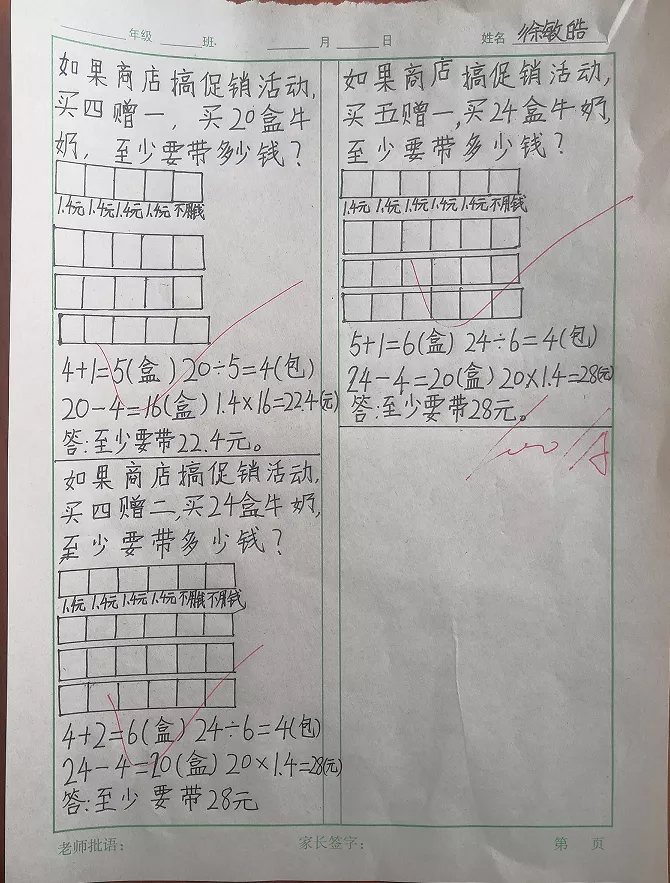 年级 班 月 日 姓名 徐敏皓
如果商店搞促销活动,
买四赠一，买20盒牛
奶，至少要带多少钱？
1.4元 1.4元 1.4元 1.4元 不用钱
4+1=5(盒) 20÷5=4(包)
20-4=16(盒) 1.4×16=22.4(元)
答:至少要带22.4元。
如果商店搞促销活动,
买四赠二,买24盒牛奶,
至少要带多少钱？
1.4元 1.4元 1.4元 1.4元 不用钱 不用钱
4+2=6(盒) 24÷6=4(包)
24-4=20(盒) 20×1.4=28(元)
答:至少要带28元
如果商店搞促销活动,
买五赠一,买24盒牛奶,
至少要带多少钱？
1.4元 1.4元 1.4元 1.4元 1.4元 不用钱
5+1=6(盒) 24÷6=4(包)
24-4=20(盒) 20×1.4=28(元)
答:至少要带28元。
老师批语： 家长签字： 第 页